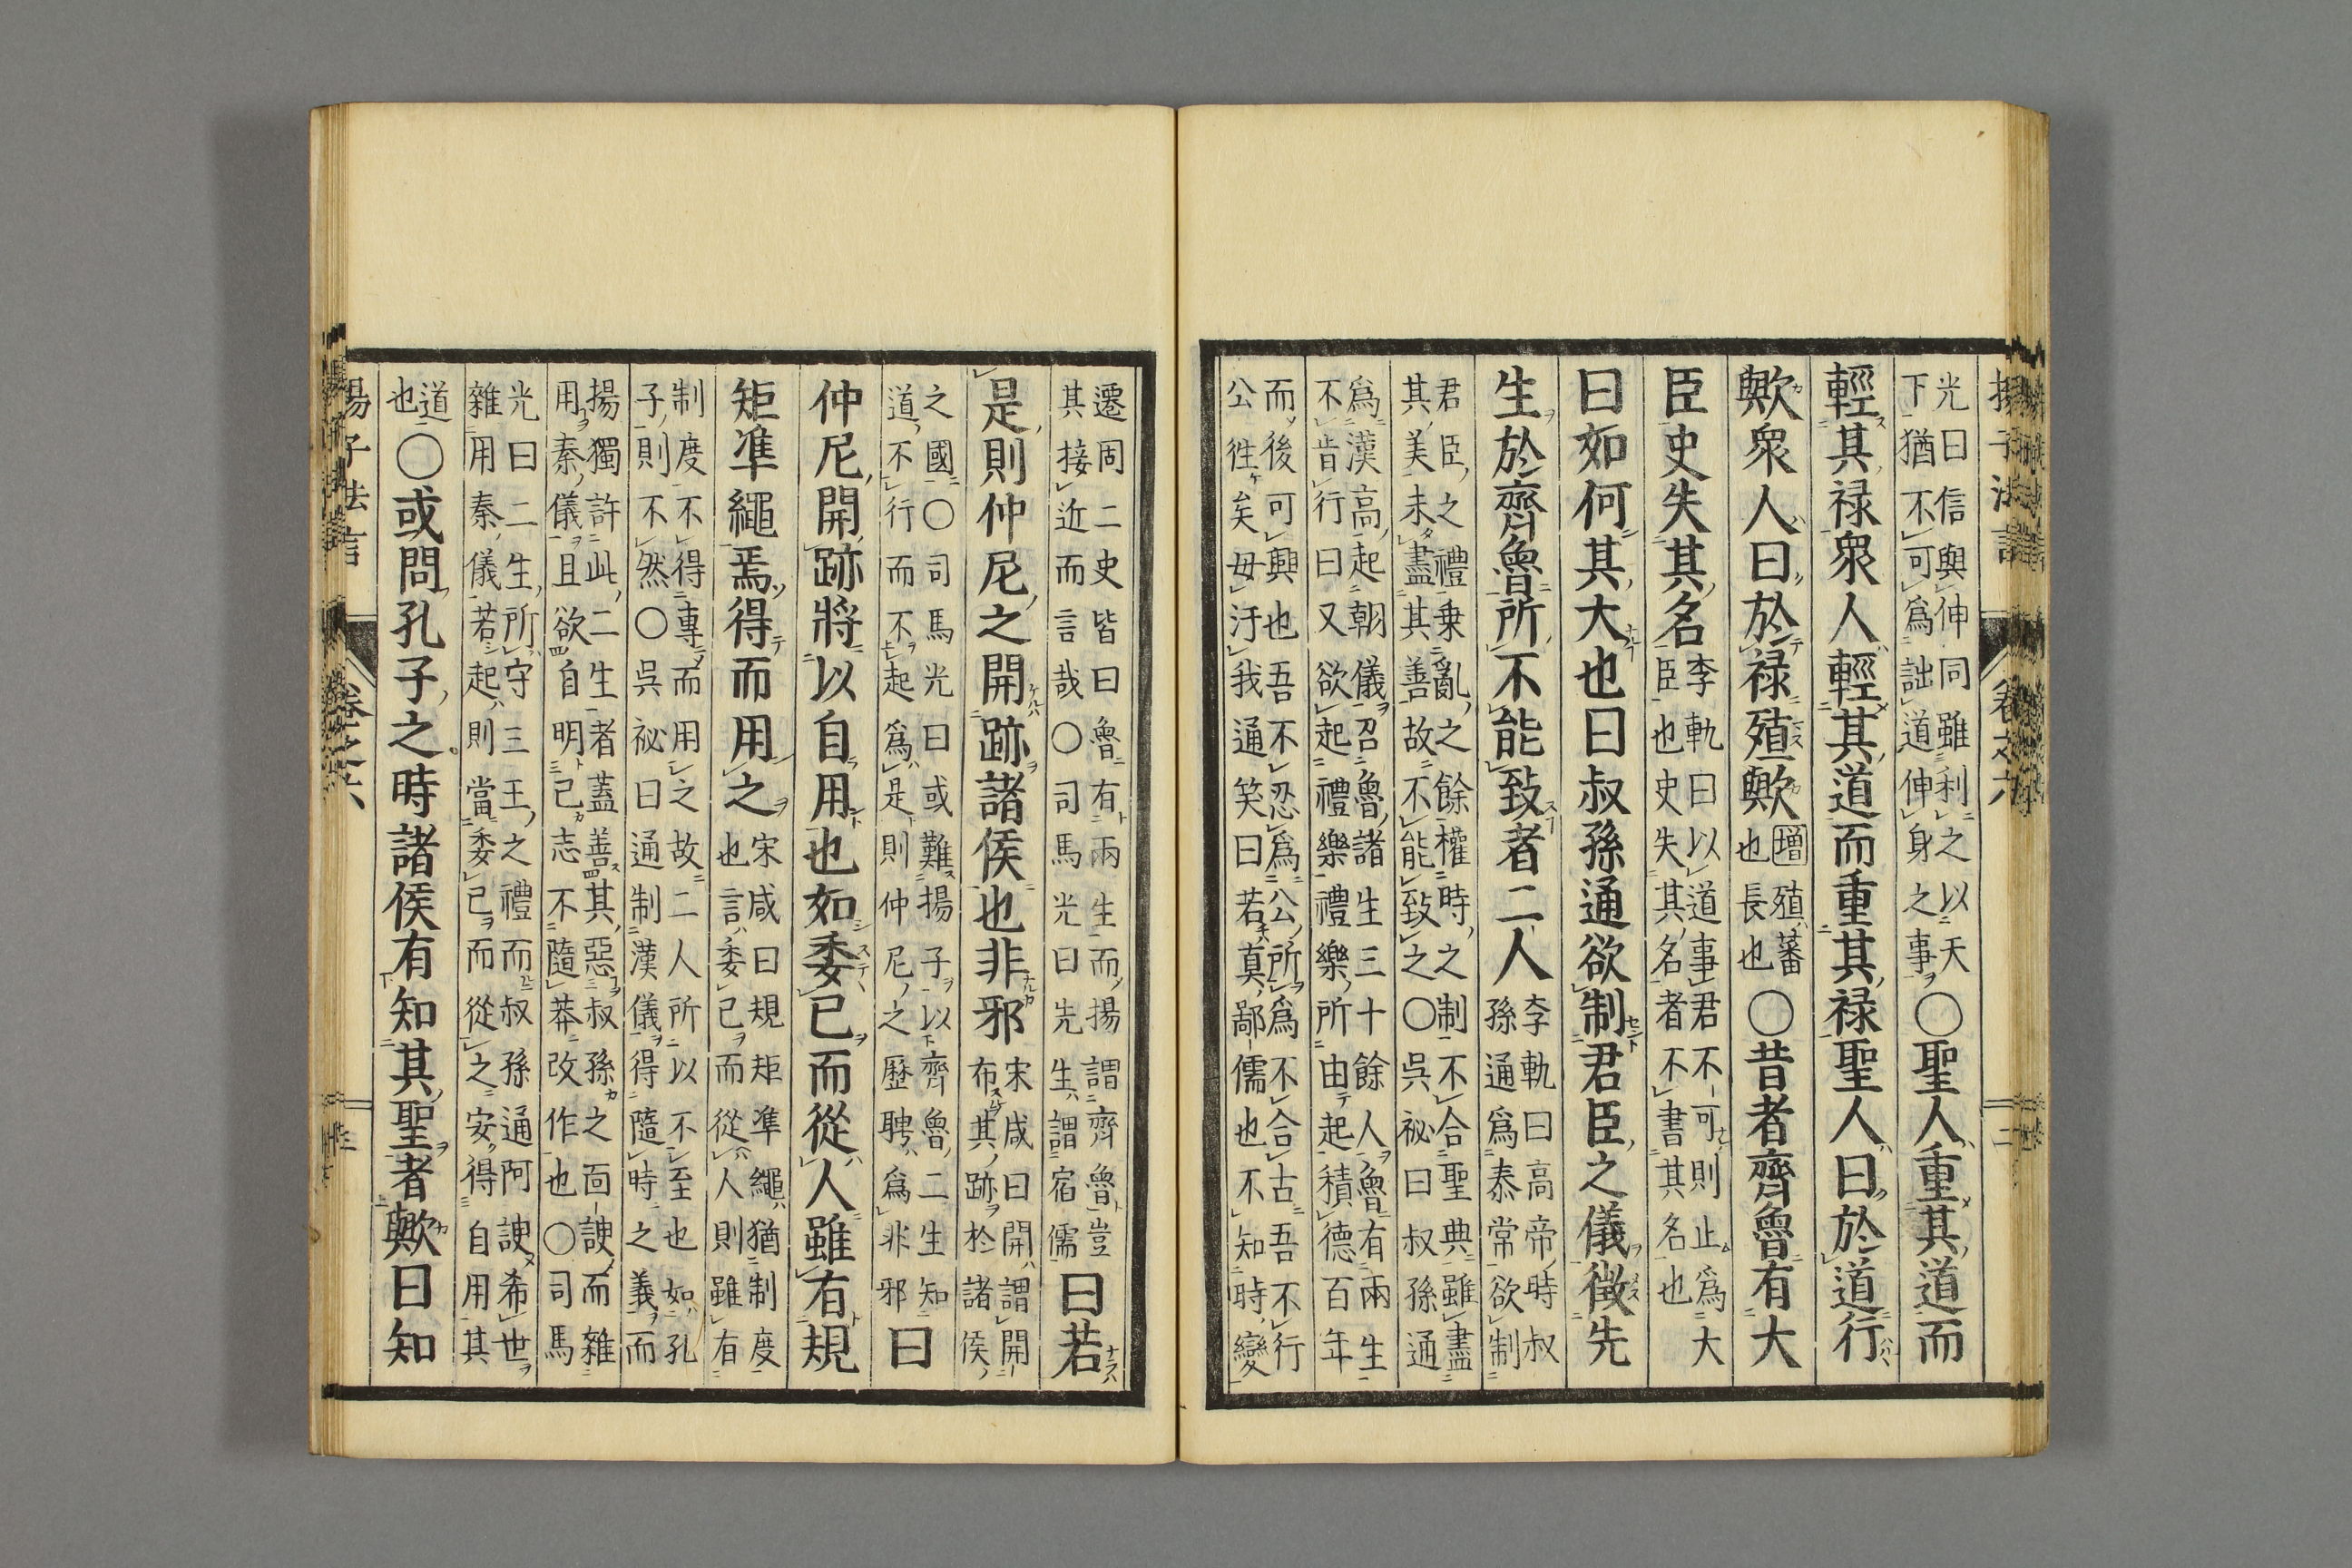 光曰信與伸同雖利之以天
下猶不可爲詘道伸身之事〇聖人重其道而
輕其祿衆人輕其道而重其祿聖人曰於道行
歟衆人曰於祿殖歟增殖蕃
也長也〇昔者齊魯有大
臣史失其名李軌曰以道事君不可則止爲大
臣也史失其名者不書其名也
曰如何其大也曰叔孫通欲制君臣之儀徵先
生於齊魯所不能致者二人李軌曰高帝時叔
孫通爲泰常欲制
君臣之禮乗亂之餘權時之制不合聖典雖盡
其美未盡其善故不能致之〇吳祕曰叔孫通
爲漢高起朝儀召魯諸生三十餘人魯有兩生
不肯行曰又欲起禮樂禮樂所由起積德百年
而後可興也吾不忍爲公所爲不合古吾不行
公徃矣毋汙我通笑曰若真鄙儒也不知時變
遷固二史皆曰魯有兩生而揚謂齊魯豈
其接近而言哉〇司馬光曰先生謂宿儒曰若
是則仲尼之開跡諸侯也非邪宋咸曰開謂開
布其跡於諸侯
之國〇司馬光曰或難揚子以齊魯二生知
道不行而不起爲是則仲尼之歷聘爲非邪曰
仲尼開跡將以自用也如委已而從人雖有規
矩準繩焉得而用之宋咸曰規矩準繩猶制度
也言委已而從人則雖有
制度不得專而用之故二人所以不至也如孔
子則不然〇吳祕曰通制漢儀得隨時之義而
揚獨許此二生者蓋善其惡叔孫之面諛而雜
用秦儀且欲自明已志不隨莽改作也〇司馬
光曰二生所守三王之禮而叔孫通阿諛希世
雜用秦儀若起則當委已而從之安得自用其
道
也〇或問孔子之時諸侯有知其聖者歟曰知
揚子法言
卷之六